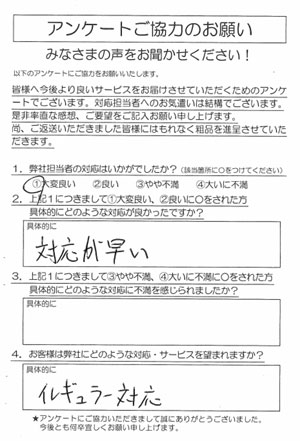 アンケートご協力のお願い
みなさまの声をお聞かせください！
以下のアンケートにご協力をお願いいたします。
皆様へ今後より良いサービスをお届けさせていただくためのアンケ
ートでございます。対応担当者へのお気遣いは結構でございます。
是非率直な感想、ご要望をご記入お願い申し上げます。
尚、ご返送いただきました皆様にはもれなく粗品を進呈させていた
だきます。
1．弊社担当者の対応はいかがでしたか？（該当箇所に○をつけてください）
①大変良い　②良い　③やや不満　④大いに不満
2．上記1につきまして①大変良い、②良いに○をされた方
具体的にどのような対応が良かったですか？
具体的に
対応が早い
3．上記1につきまして③やや不満、④大いに不満に○をされた方
具体的にどのような対応に不満を感じられましたか？
具体的に
4．お客様は弊社にどのような対応・サービスを望まれますか？
具体的に
イレギュラー対応
★アンケートにご協力いただきまして誠にありがとうございました。
今後とも何卒宜しくお願い申し上げます。